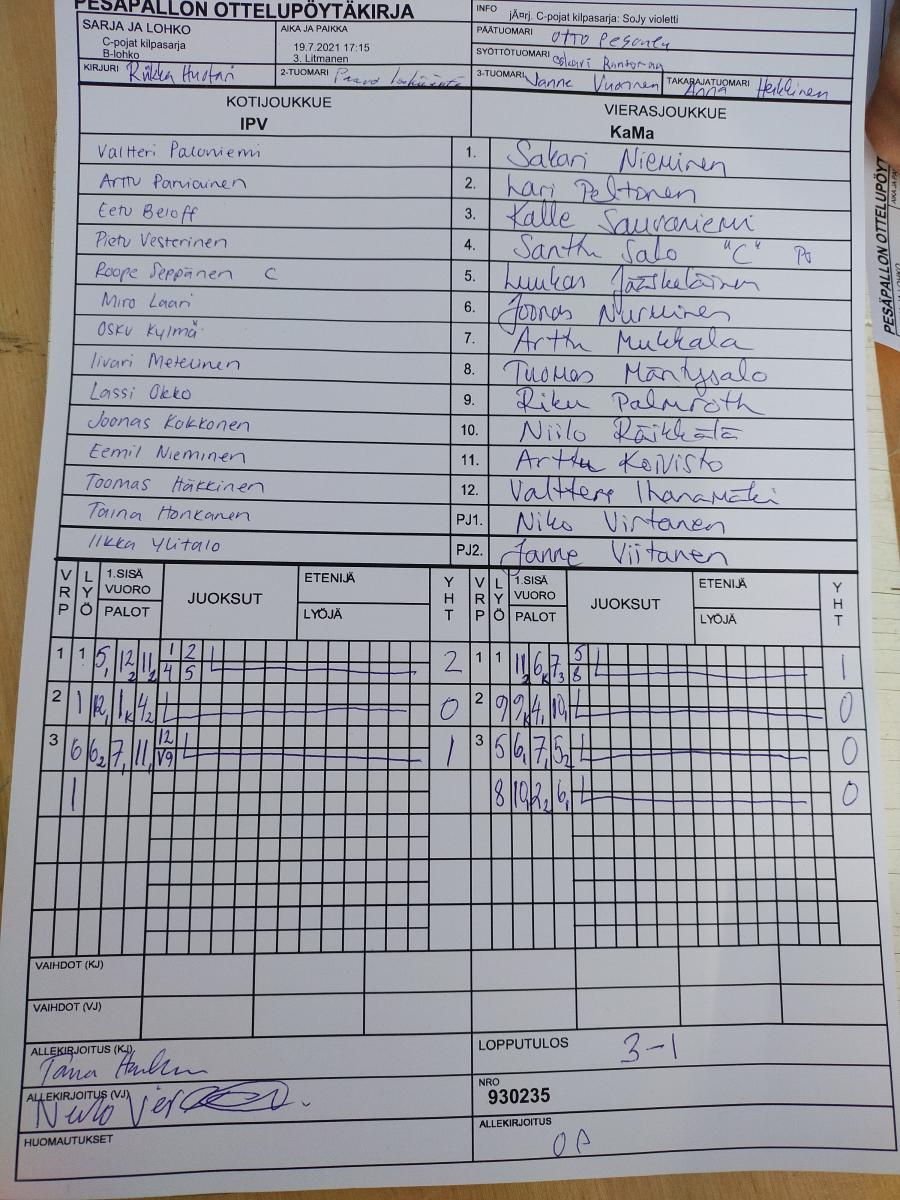 PESÄPALLON OTTELUPÖYTÄKIRJA
INFO jÃ¤rj. C-pojat kilpasarja: SoJy violetti
SARJA JA LOHKO
C-pojat kilpasarja
B-lohko
AIKA JA PAIKKA
19.7.2021 17:15
3. Litmanen
PÄÄTUOMARI Otto Pesonen
SYÖTTÖTUOMARI Oskari
KIRJURI Riikka Huotari
2-TUOMARI Paavo
3-TUOMARI Janne Vuorinen
TAKARAJATUOMARI Anna Heikkinen
KOTIJOUKKUE
IPV
VIERASJOUKKUE
KaMa
Valtteri Paloniemi 1. Sakari Nieminen
Arttu Parviainen 2. Lari Peltonen
Eetu Beloff 3. Kalle Sauvaniemi
Pietu Vesterinen 4. Santtu Salo "C" Po
Roope Seppänen C 5. Luukas Jääskeläinen
Miro Laari 6. Joonas Nurminen
Osku Kylmä 7. Arttu Mukkala
Iivari Meteunen 8. Tuomas Mäntysalo
Lassi Okko 9. Riku Palmroth
Joonas Kokkonen 10. Niilo Räikkälä
Eemil Nieminen 11. Arttu Koivisto
Toomas Häkkinen 12. Valtteri Ihanamäki
Taina Honkanen PJ1. Niko Virtanen
Ilkka Ylitalo PJ2. Janne Viitanen
VRP LYÖ 1.SISÄ VUORO PALOT JUOKSUT ETENIJÄ LYÖJÄ YHT VRP LYÖ 1.SISÄ VUORO PALOT JUOKSUT ETENIJÄ LYÖJÄ YHT
1 1 5, 12 2 11 2 1 2 4 5 2 1 1 11 2 6 K 7 3 5 8 1
2 1 12, 1 K 4 2 0 2 9 9 K 4, 10, 0
3 6 6 2 7, 11, 12 V9 1 3 5 6, 7, 5 2 0
1 8 10, 2 2 6, 0
VAIHDOT (KJ)
VAIHDOT (VJ)
ALLEKIRJOITUS (KJ)
LOPPUTULOS 3-1
ALLEKIRJOITUS (VJ)
NRO
930235
HUOMAUTUKSET
ALLEKIRJOITUS
OP
PESÄPALLON OTTELUPÖYT